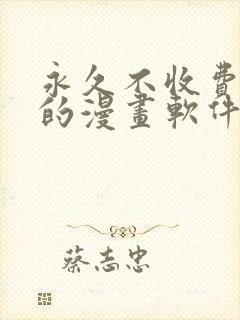 永久不收費
的漫畫軟件
蔡志忠